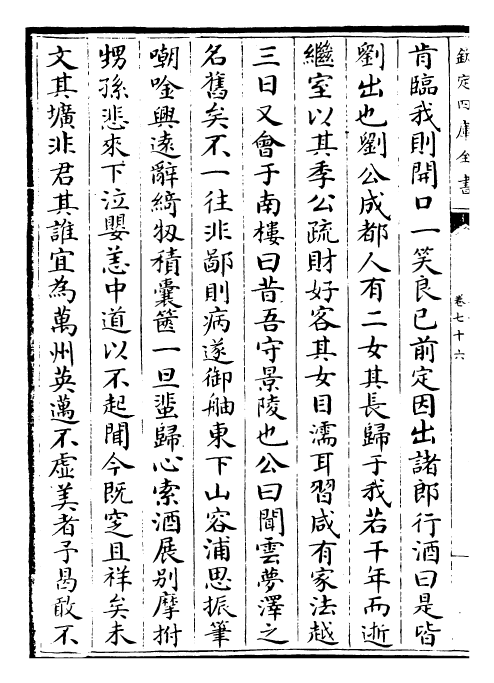 欽定四庫全書
卷七十六
肯臨我則開口一笑良已前定因出諸郎行酒曰是皆
劉出也劉公成都人有二女其長歸于我若干年而逝
繼室以其季公疏財好客其女目濡耳習咸有家法越
三日又會于南樓曰昔吾守景陵也公曰聞雲夢澤之
名舊矣不一往非鄙則病遂御舳東下山容浦思振筆
嘲唫興遠辭綺牣積囊篋一旦蜚歸心索酒展别摩拊
甥孫悲來下泣嬰恙中道以不起聞今既窆且祥矣未
文其壙非君其誰宜為萬州英邁不虛美者予曷敢不